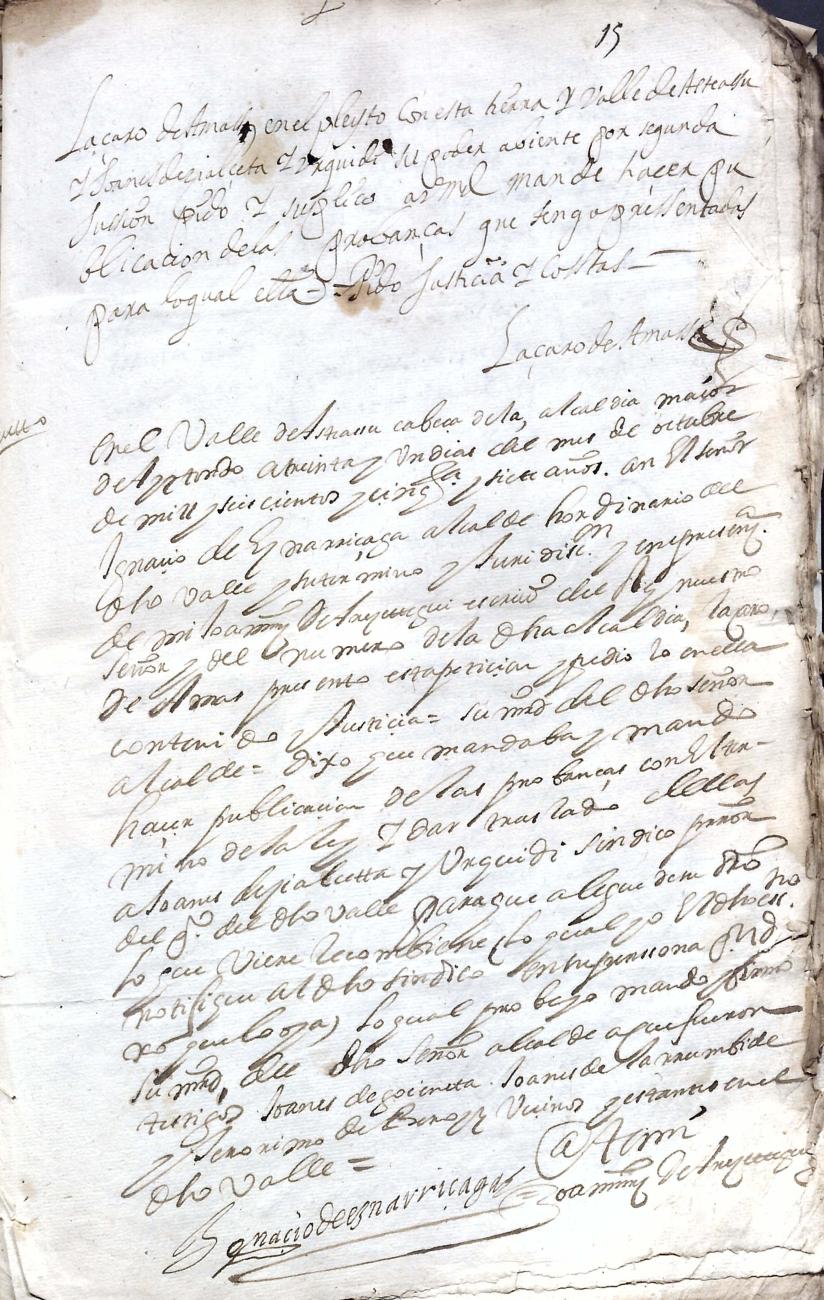 15
Laçaro de Amass en el pleyto con esta tierra y Valle de Asteassu
y Joanes de çialçeta y Urquidi su poder abiente por segunda
jussion pido y suplico a vmd mande hacer pu
blicacion de las provanças que tengo pressentadas
para lo qual etta Pido Justicia y Costas
Laçaro de Amass
autto
En el Valle de Asteassu cabeca de la, alcaldia maior
de Ayztondo a treinta y un dias del mes de octubre
de mill y seiscientos y cinqta y siete años. an El señor
Ignacio de Eznarriçaga alcalde hordinario del
dho valle y su termino y Juridisçn y en presenª
de mi Joan mnz de Inyttegui escrivº del Rey nuestro
señor y del numero de la dha alcaldia, laçaro
de Amas presento esta peticion y pidio lo en ella
contenido y Justicia = su mrd del dho señor
alcalde = Dixo que mandaba y mando
hacer publicacion de las probanças con El ter-
mino de la ley y dar traslado dellas
a Joanes de çialcetta y Urquidi sindico prnor
del gl. del dho valle para que alegue de su drho
lo que viere le combiene, lo qual yo El dho escno.
notifique al dho sindico en su perssona qud
xo que lo oya, lo qual probeyo mando y firmo
su mrd, del dho señor alcalde a que fueron
testigos Joanes de goicueta. Joanes de larrumbide
y Jeronimo de vecinos y estantes en el
dho Valle =
Ignacio de eznarriçaga
Ante mi
Joan mnz de Inyttegui